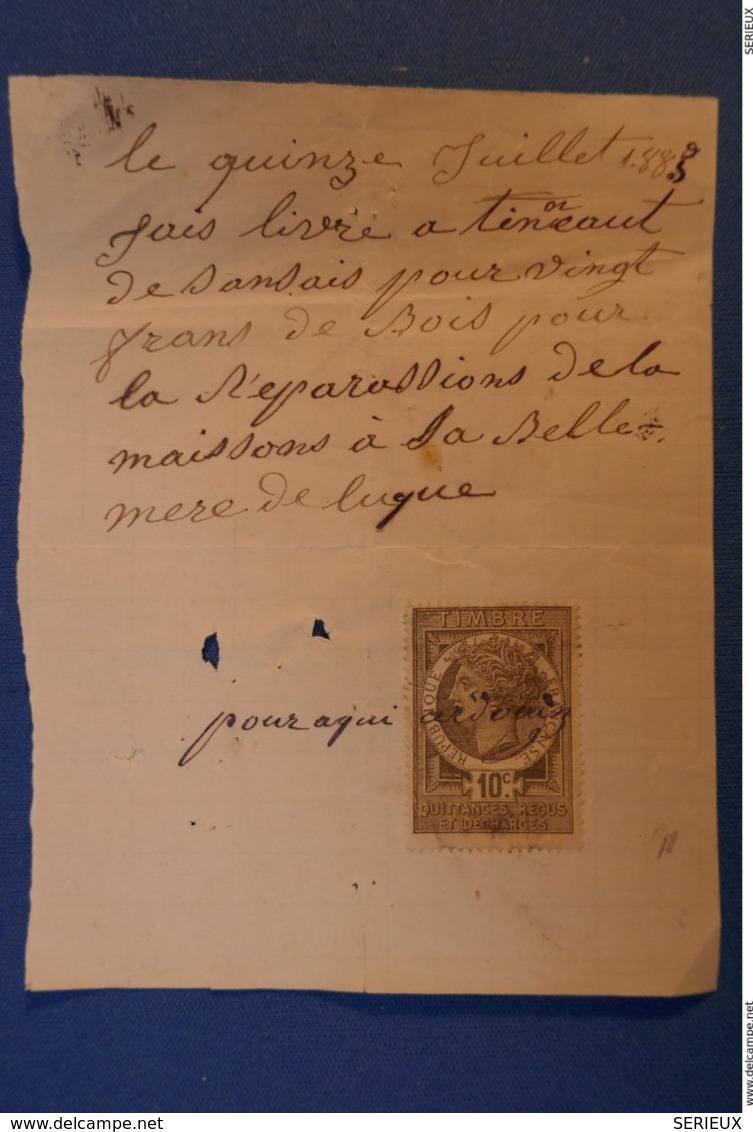 le quinze Juillet 1.883
Jais livré a tinneaut
de sansais pour vingt
frans de Bois pour
la Réparassions de la
maissons à Sa Belle=
mere de lugue
TIMBRE
RÉPUBLIQUE FRANÇAISE
pour aqui ardouin
10 C.
QUITTANCES, REÇUS
ET DÉCHARGES
SERIEUX
www.delcampe.net
www.delcampe.net
SERIEUX